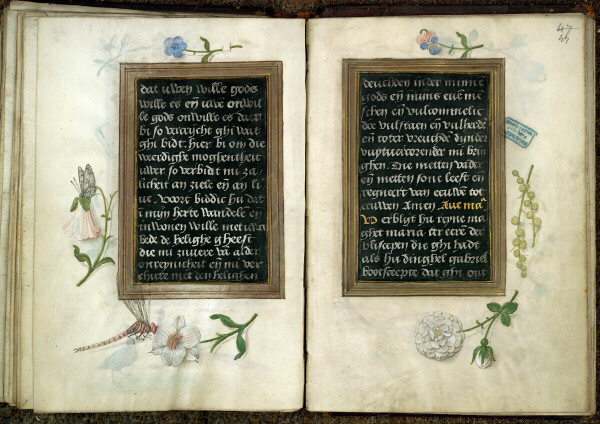 dat uwen wille gods
wille es eñ uwe onwil
le gods onwille es daer
bi so vercrycht ghi wat
ghi bidt. hier bi om die
weerdighe moghentheit
uwer so verbidt mi za
licheit an ziele eñ an li
ue. Voort biddic hu dat
in mijn herte wandele eñ
in wonen wille met uwer
bede de helighe gheest
die mi zuvere vā alder
onreynicheit eñ mi ver
chiere met den helighen
47
deuchden in der minnē
gods eñ mijns euē me
schen eñ vulcommelic
doe vulstaen eñ vulherdē
eñ toter vreuchde
mi brin
ghen. Die metten vader
eñ metten sone leeft eñ
regneert van eeuwen tot
eeuwen Amen Aue maā
Verblijt hu reyne ma
ghet maria ter eeren der
bliscepen die ghi hadt
als hu dinghel gabriel
bootscepte dat ghi ont